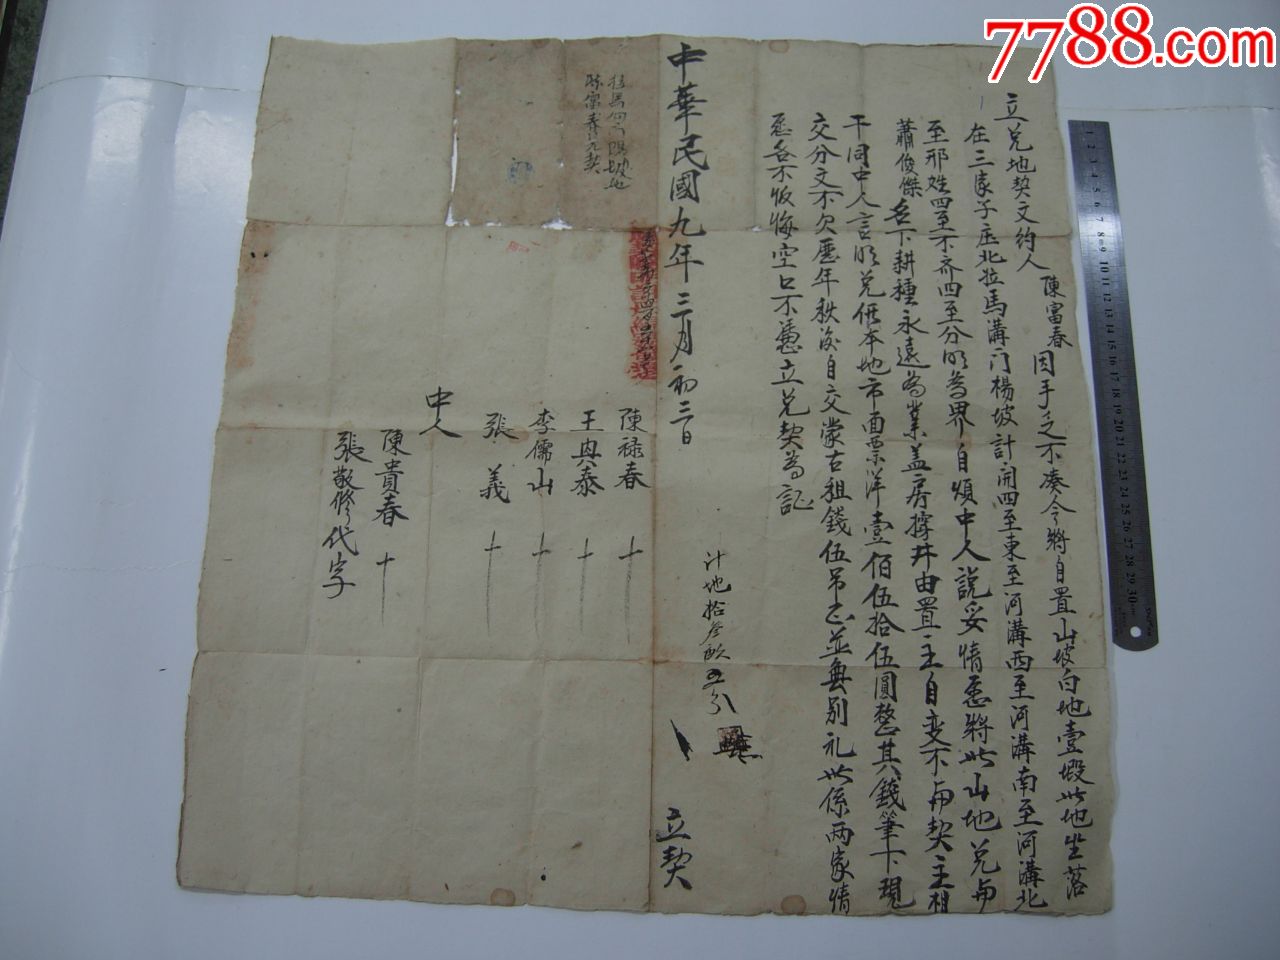 7788.com
立兑地契文约人陳富春因手乏不凑今將自置山坡白地壹塅此地坐落
在三家子庄北拉馬溝门楊坡計開四至東至河溝西至河溝南至河溝北
至邢姓四至不齐四至分明為界自煩中人說妥情愿將此山地兑與
蕭俊傑名下耕種永遠為業盖房撈井由置主自变不與契主相
干同中人言明兑價本地市面票洋壹佰伍拾伍圓整其錢筆下現
交分文不欠歷年秋後自交蒙古租錢伍吊正並無別礼此係两家情
愿各不返悔空口不憑立兑契為証
計地拾叁畝五分
中華民國九年三月初三日 立契
陳禄春 十
王典泰 十
李儒山 十
張義 十
中人
陳貴春 十
張敬修代字